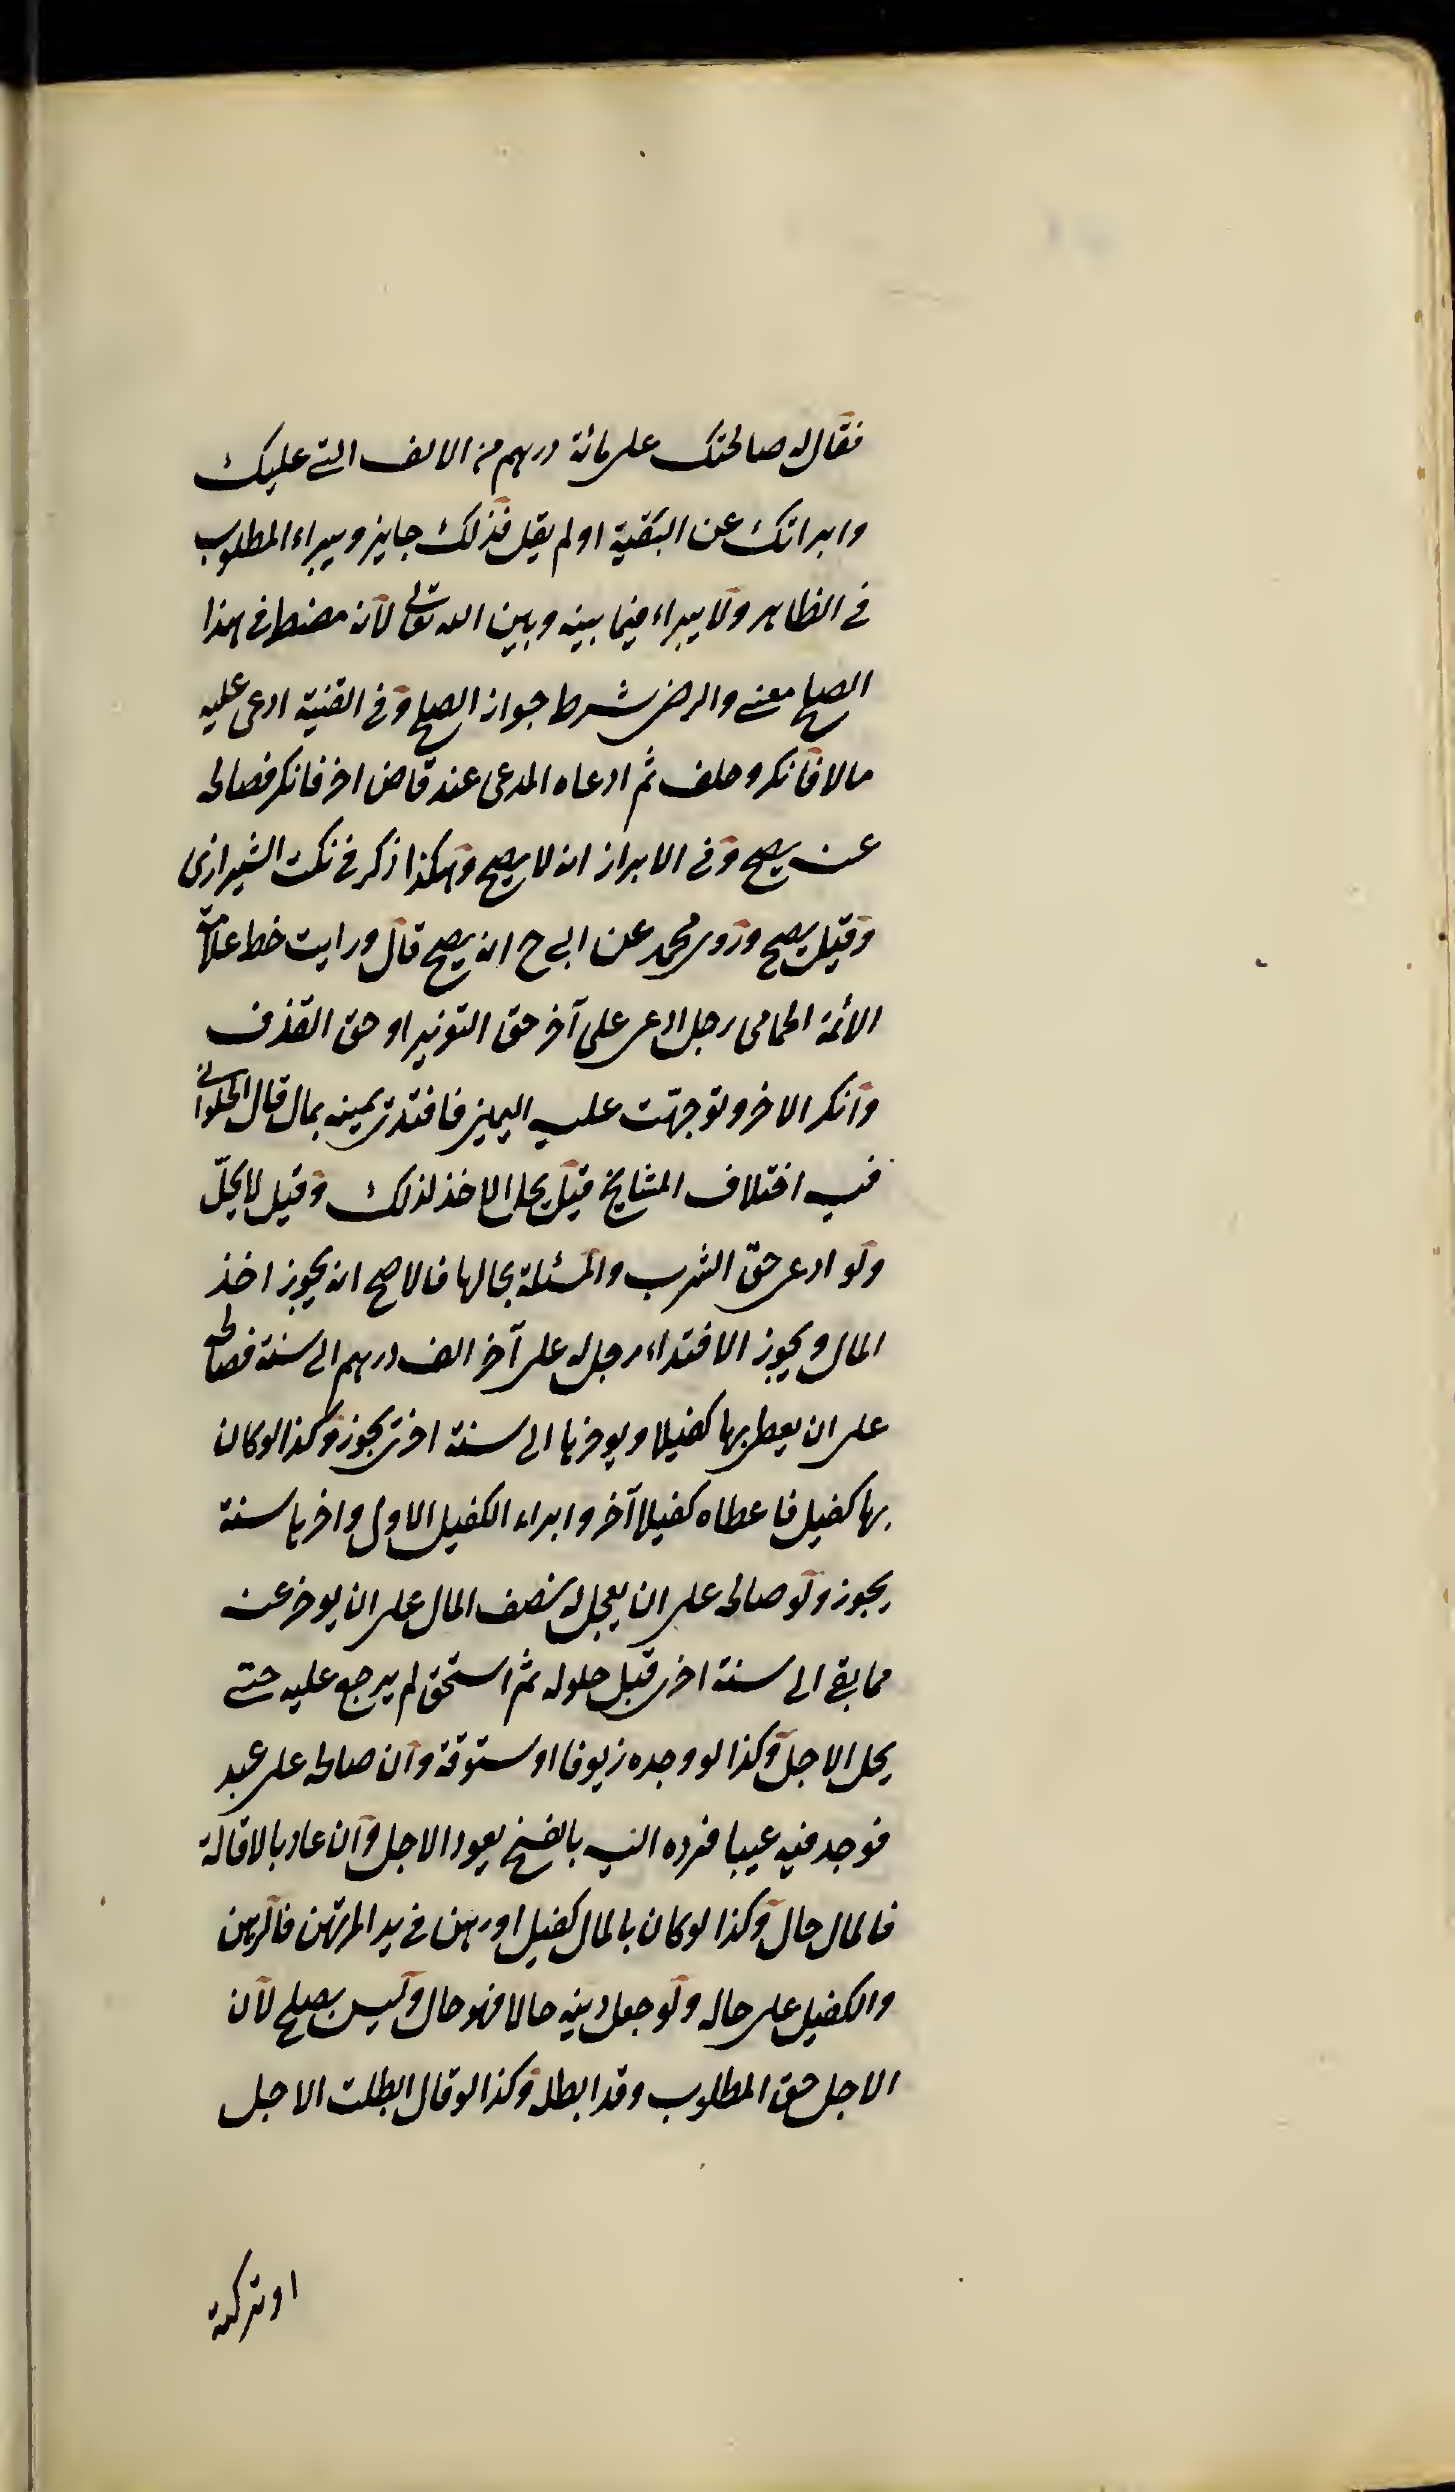 فقال له صالحتك على مائة درهم من الالف التي عليك
وابراتك عن البقية او لم يقل فذلك جايز ويبراء المطلوب
في الظاهر ولا يبراء فيما بينه وبين الله تعالى لانه مضطر في هذا
الصلح معنى والرضى شرط جواز الصلح وفي القنية ادعى عليه
مالا فانكر وحلف ثم ادعاه المدعى عند قاض اخر فانكر فصالحه
عنه يصح وفي الابراز انه لا يصح وهكذا ذكر في نكت الشيرازى
وقيل يصح وروى محمد عن ابي ح انه يصح قال ورايت خط علامة
الائمة الحمامى رجل ادعى على آخر حق التعزير او حق القذف
وانكر الاخر وتوجهت عليه اليمين فافتدى يمينه بمال قال الحلوانى
فيه اختلاف المشايخ قيل يحل الاخذ لذلك وقيل لا يحل
ولو ادعى حق الشرب والمسئلة بحالها فالاصح انه يجوز اخذ
المال ويجوز الافتداء رجل له على آخر الف درهم الى سنة فصالحه
على ان يعطى بها كفيلا ويوخرها الى سنة اخرى يجوز وكذا لو كان
بها كفيل فاعطاه كفيلا آخر وابراء الكفيل الاول واخرها سنة
يجوز ولو صالحه على ان يعجل له نصف المال على ان يوخر عنه
ما بقى الى سنة اخرى قبل حلوله ثم استحق لم يرجع عليه حتى
يحل الاجل وكذا لو وجده زيوفا او ستوقة وان صالحه على عبد
فوجد فيه عيبا فرده اليه بالفسخ يعود الاجل وان عاد بالاقالة
فالمال حال وكذا لو كان بالمال كفيل او رهن في يد المرتهن فالرهن
والكفيل على حاله ولو جعل دينه حالا فهو حال وليس بصلح لان
الاجل حق المطلوب وقد ابطله وكذا لو قال ابطلت الاجل
او تركته